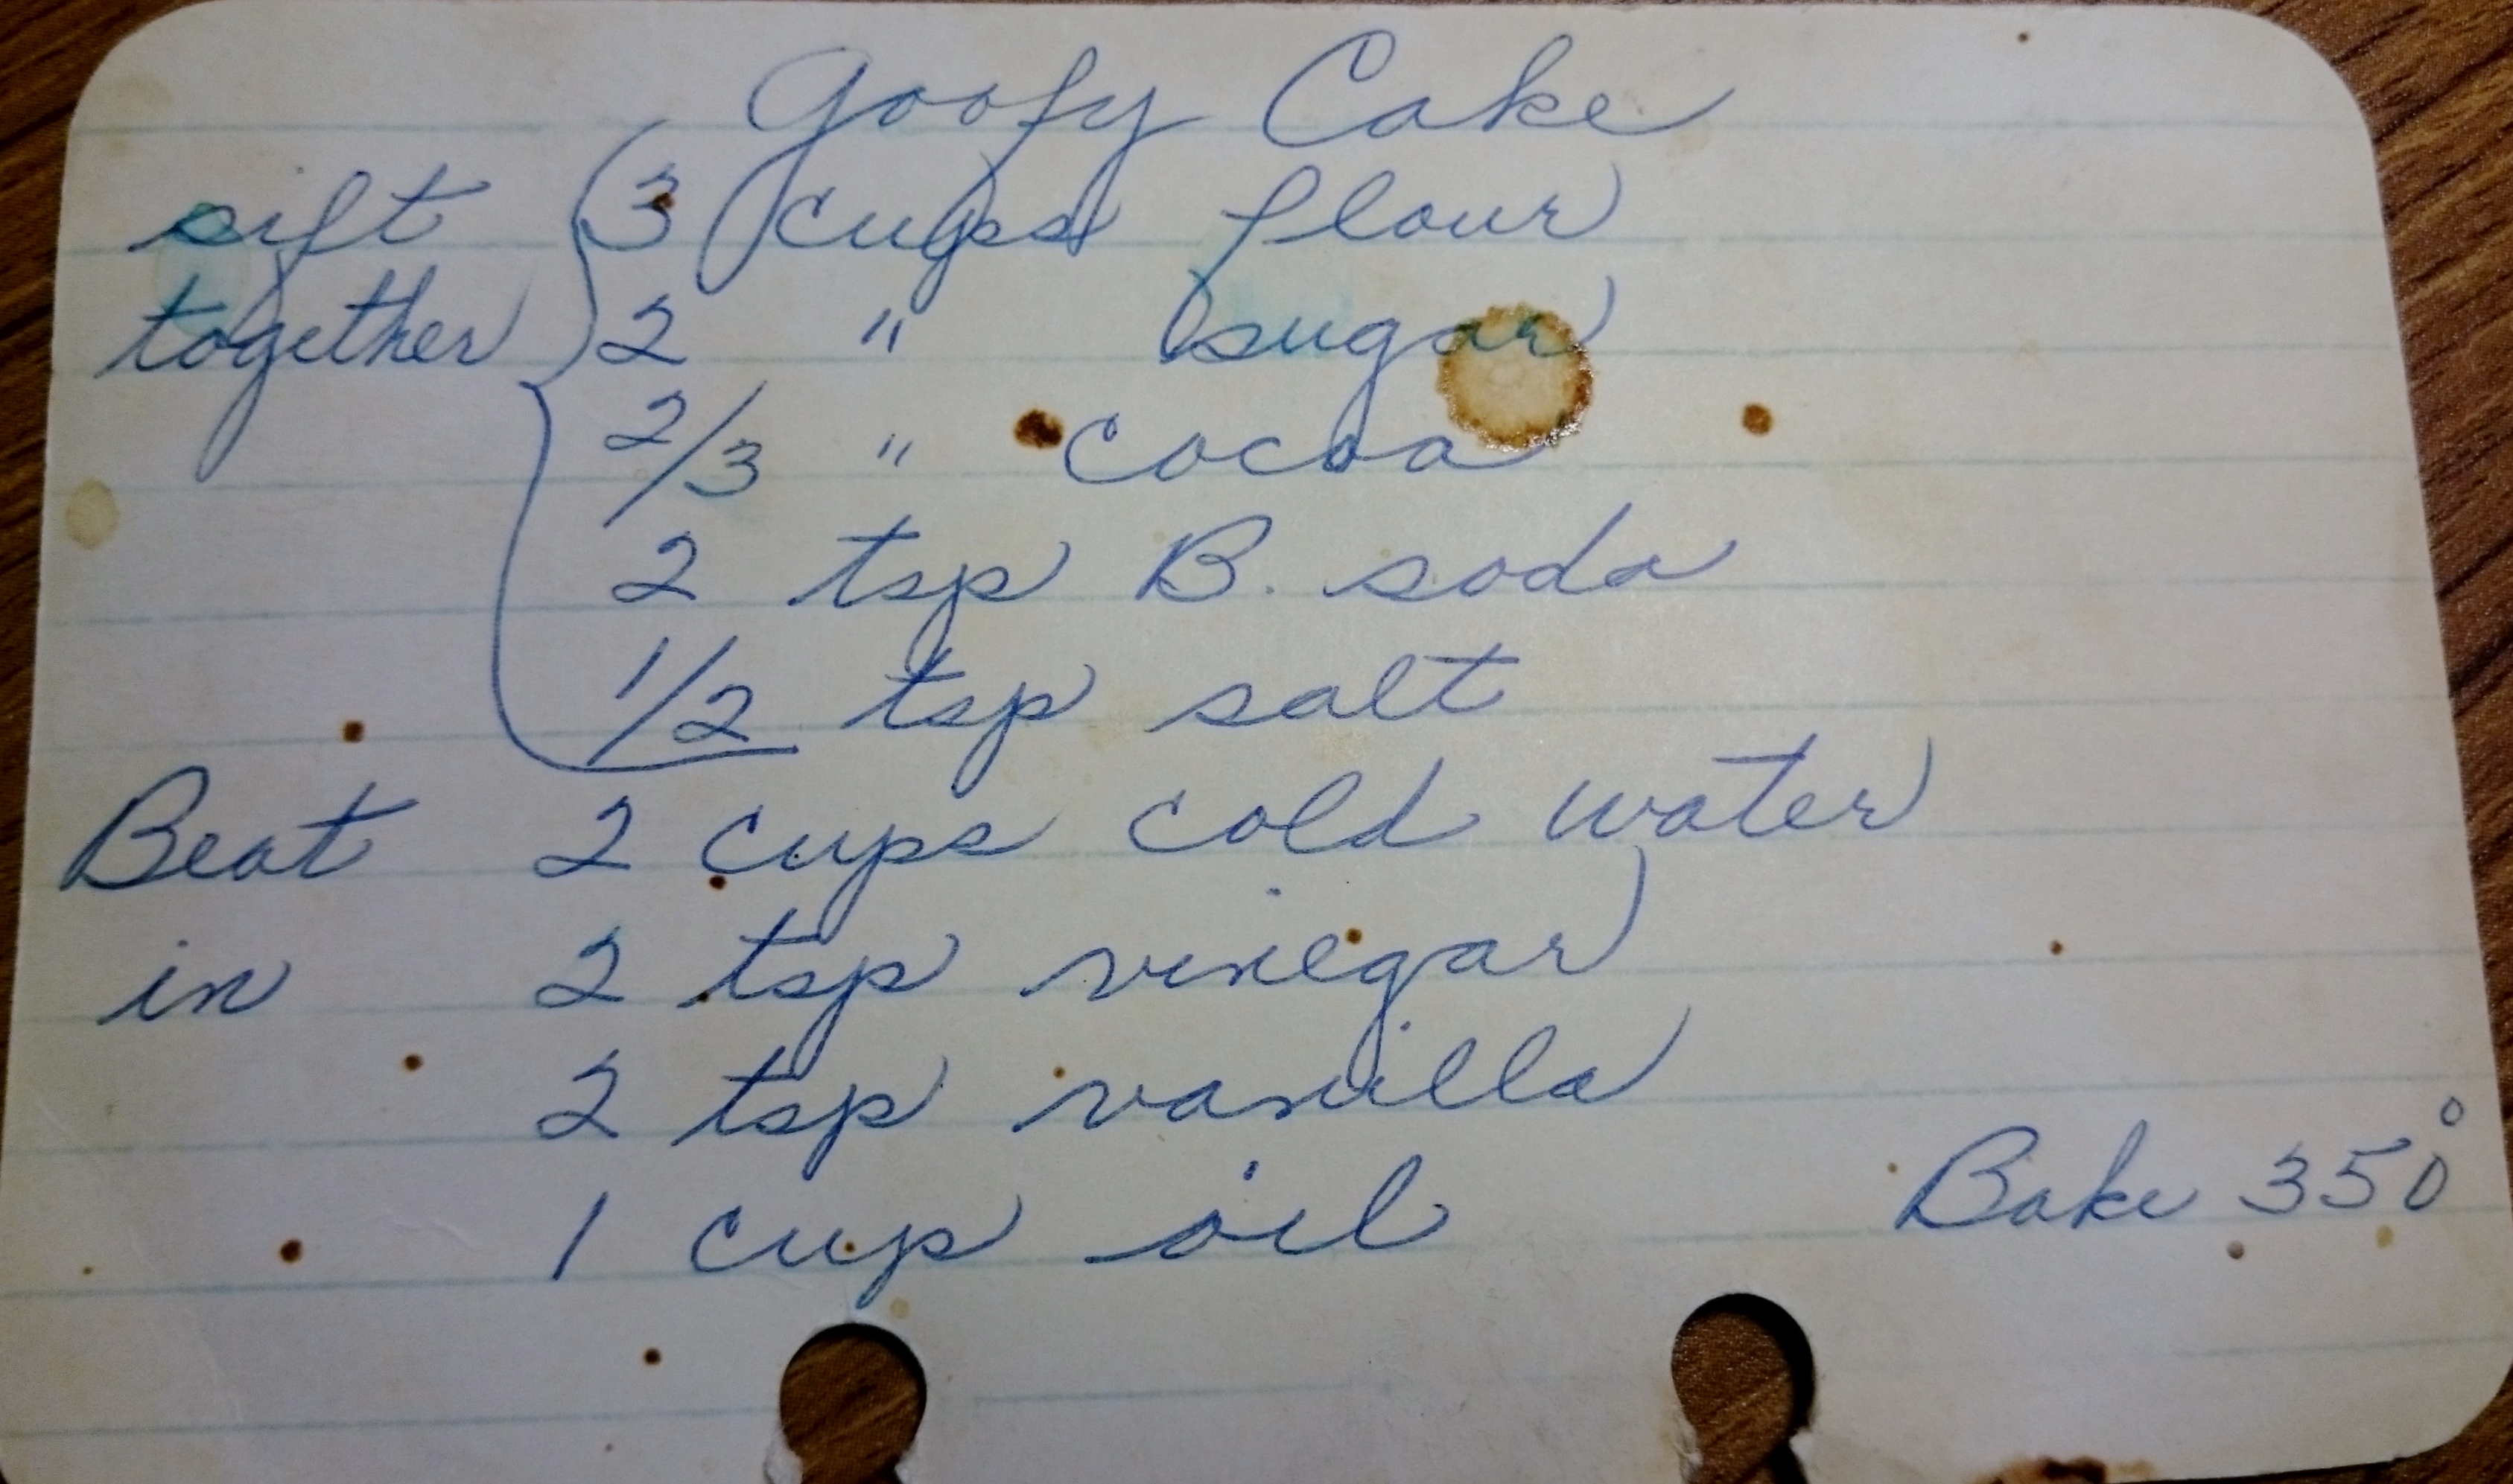 Goofy Cake
sift 3 cups flour
together 2 " sugar
2/3 " cocoa
2 tsp B. soda
1/2 tsp salt
Beat 2 cups cold water
in 2 tsp vinegar
2 tsp vanilla
1 cup oil
Bake 350°